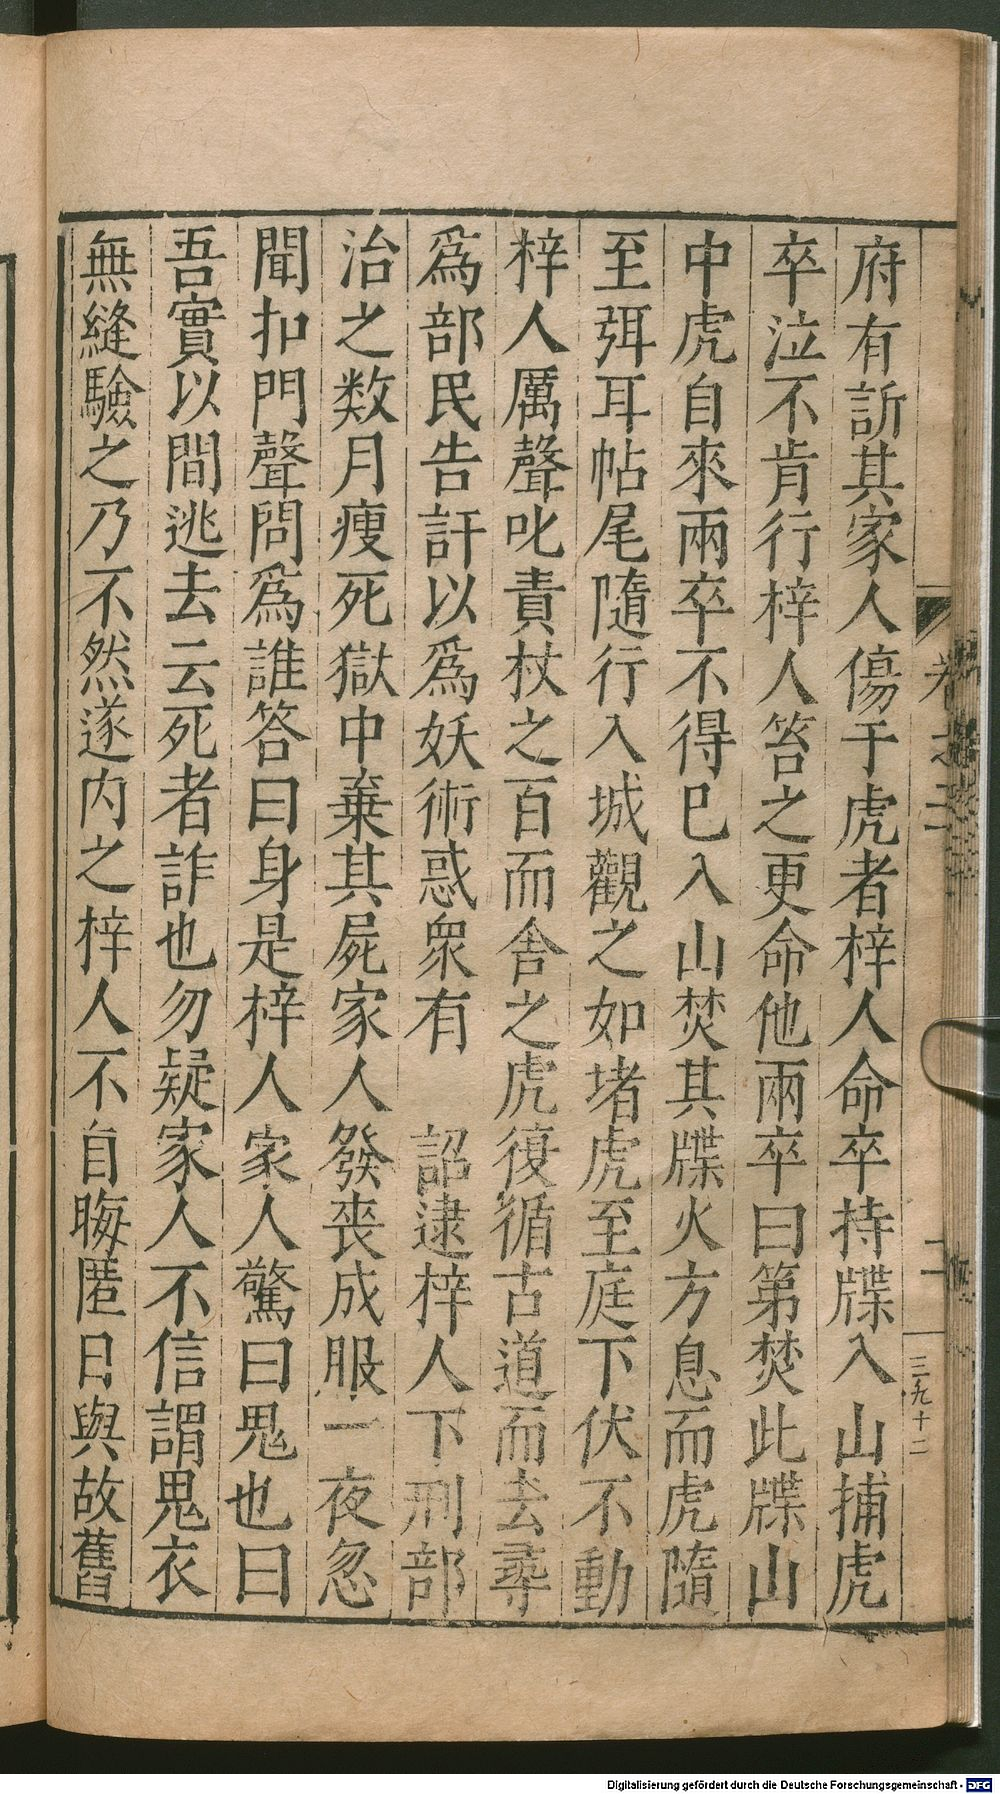 府有訢其家人傷于虎者梓人命卒持牒入山捕虎
卒泣不肯行梓人笞之更命他兩卒曰第焚此牒山
中虎自來兩卒不得已入山焚其牒火方息而虎隨
至弭耳帖尾隨行入城觀之如堵虎至庭下伏不動
梓人厲聲叱責杖之百而舍之虎復循古道而去尋
爲部民告訐以爲妖術惑衆有 詔逮梓人下刑部
治之数月瘦死獄中棄其屍家人發喪成服一夜忽
聞扣門聲問爲誰答曰身是梓人家人驚曰鬼也曰
吾實以間逃去云死者詐也勿疑家人不信謂鬼衣
無縫驗之乃不然遂内之梓人不自晦匿日與故舊
卷之二
二
三九十二
Digitalisierung gefördert durch die Deutsche Forschungsgemeinschaft - DFG